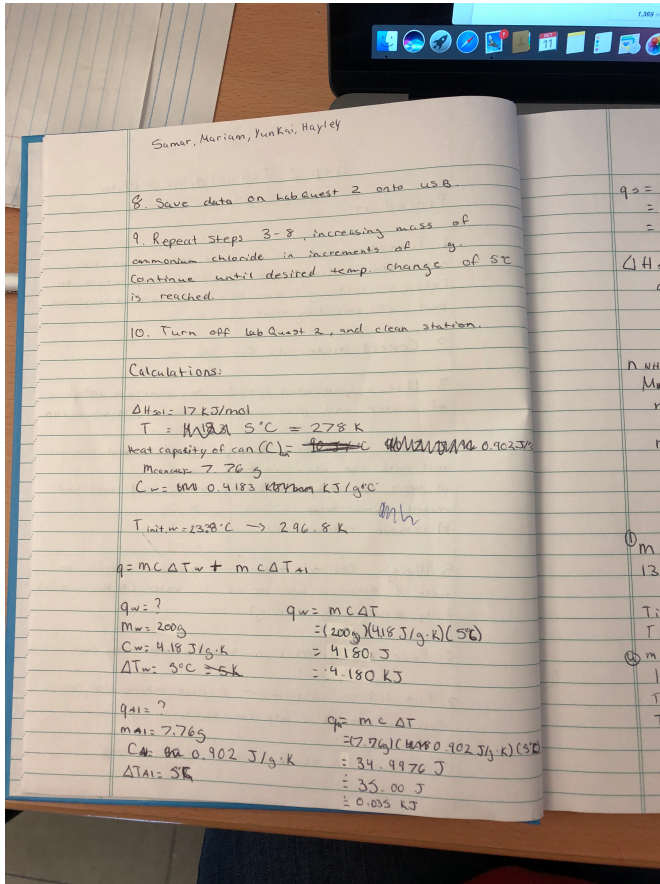 1,369
OCT
11
Samar, Mariam, Yunkai, Hayley
8. Save data on LabQuest 2 onto USB.
9. Repeat steps 3-8, increasing mass of
ammonium chloride in increments of g.
Continue until desired temp. change of 5°C
is reached.
10. Turn off LabQuest 2, and clean station.
Calculations:
ΔHsol = 17 KJ/mol
T = 5°C = 278 K
Heat capacity of can (C) = 0.902 J/g
7.76 g
Cw = 0.4183 KJ/g°C
T init,w = 23.8°C → 296.8 K
q = mCΔTw + mCΔTAl
qw = ?
mw = 200g
Cw = 4.18 J/g·K
ΔTw = 5°C = 5K
qw = mCΔT
= (200g)(4.18 J/g·K)(5°C)
= 4180 J
= 4.180 KJ
qAl = ?
mAl = 7.76g
0.902 J/g·K
ΔTAl = 5K
q = mCΔT
= (7.76)(0.902 J/g·K)(5°K)
= 34.9976 J
= 35.00 J
= 0.035 KJ
qs =
=
=
ΔH
n NH
m
13
Ti
T
m